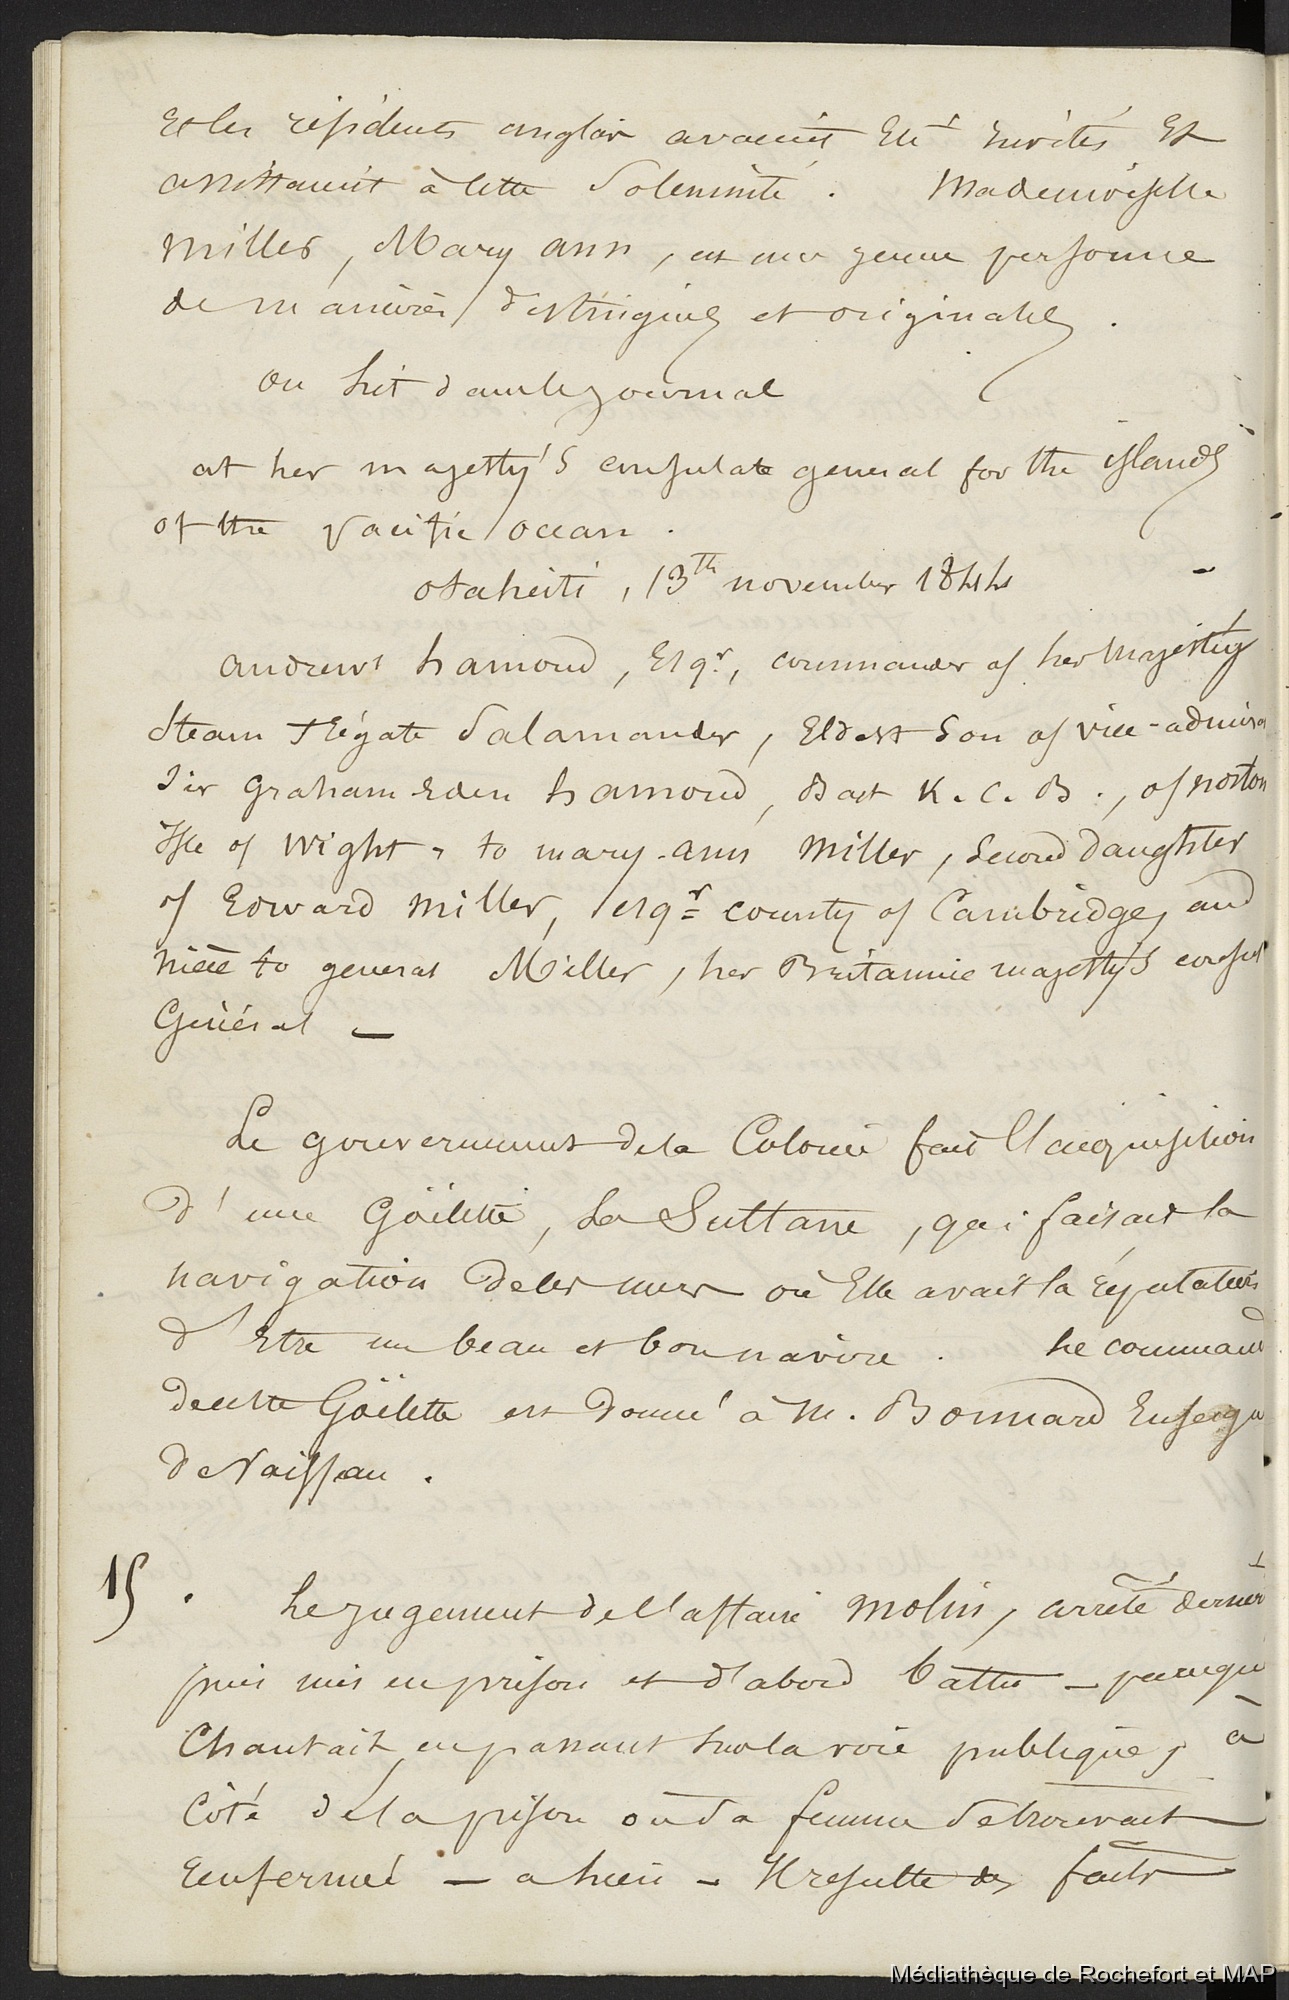 Et les résidents anglais avaient été invités Et
assistaient à cette Solennité. Mademoiselle
Miller, Mary ann, est une jeune personne
de manières distinguées et originales.
on lit dans le journal
at her majesty's consulate general for the islands
of the pacific ocean.
otaheiti, 13th november 1844
andrews hamond, Esqr, commander of her Majesty
Steam Frégate Salamander, Eldest Son of vice-admiral
Sir Graham Eden hamond, Bart K.C.B., of norton
Isle of Wight, to mary-ann Miller, Second daughter
of Edward Miller, esqr county of Cambridge, and
nièce to general Miller, her Britannic majesty's consul
Général —
Le gouvernement de la Colonie fait l'acquisition
d'une Göëlette, La Sultane, qui faisait la
navigation de ces mers où Elle avait la réputation
d'Etre un beau et bon navire. Le command
de cette Göëlette est donné à M. Bonnard Enseign
de Vaisseau.
15. Le jugement de l'affaire Molin, arrêté dernier
puis mis en prison et d'abord battu — parcequ
Chantait en passant sur la voie publique, à
Côté de la prison où sa femme se trouvait
Renfermée — a lieu — Il résulte des faits
Médiathèque de Rochefort et MAP